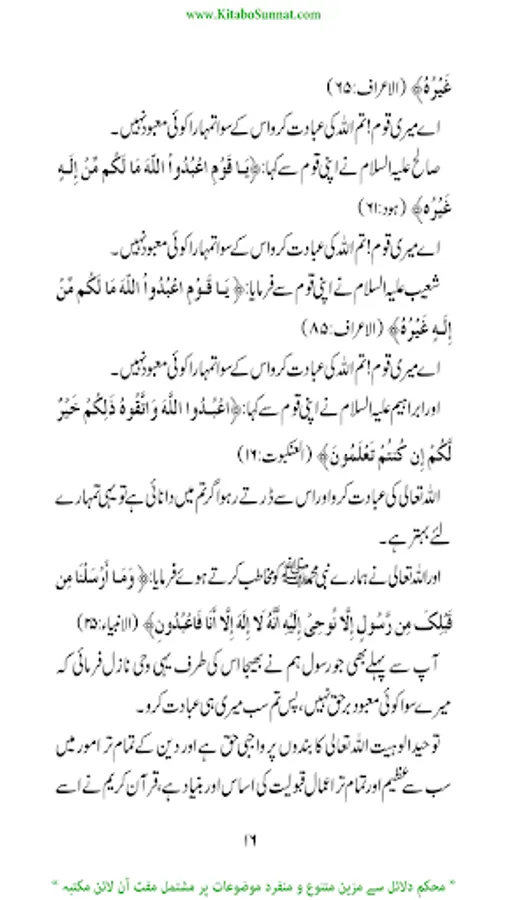 www.KitaboSunnat.com
غَيْرُهُ﴾ (الاعراف:۶۵)
اے میری قوم! تم اللہ کی عبادت کرو اس کے سوا تمہارا کوئی معبود نہیں۔
صالح علیہ السلام نے اپنی قوم سے کہا: ﴿يَـا قَوْمِ اعْبُدُواْ اللّهَ مَا لَكُم مِّنْ إِلَـهٍ
غَيْرُه﴾ (ہود:۶۱)
اے میری قوم! تم اللہ کی عبادت کرو اس کے سوا تمہارا کوئی معبود نہیں۔
شعیب علیہ السلام نے اپنی قوم سے فرمایا: ﴿يَـا قَـوْمِ اعْبُدُواْ اللّهَ مَا لَكُم مِّنْ
إِلَـهٍ غَيْرُهُ﴾ (الاعراف:۸۵)
اے میری قوم! تم اللہ کی عبادت کرو اس کے سوا تمہارا کوئی معبود نہیں۔
اور ابراہیم علیہ السلام نے اپنی قوم سے کہا: ﴿اعْبُـدُوا اللَّهَ وَاتَّقُوهُ ذَلِكُمْ خَيْرٌ
لَّكُمْ إِن كُنتُمْ تَعْلَمُونَ﴾ (العنکبوت:۱۶)
اللہ تعالی کی عبادت کرو اور اس سے ڈرتے رہو اگر تم میں دانائی ہے تو یہی تمہارے
لئے بہتر ہے۔
اور اللہ تعالی نے ہمارے نبی محمد ﷺ کو مخاطب کرتے ہوئے فرمایا: ﴿وَمَـا أَرْسَلْنَا مِن
قَبْلِكَ مِن رَّسُولٍ إِلَّا نُوحِيْ إِلَيْهِ أَنَّهُ لَا إِلَهَ إِلَّا أَنَا فَاعْبُدُونِ﴾ (الانبیاء:۲۵)
آپ سے پہلے بھی جو رسول ہم نے بھیجا اس کی طرف یہی وحی نازل فرمائی کہ
میرے سوا کوئی معبود برحق نہیں، پس تم سب میری ہی عبادت کرو۔
توحید الوہیت اللہ تعالی کا بندوں پر واجبی حق ہے اور دین کے تمام تر امور میں
سب سے عظیم اور تمام تر اعمال قبولیت کی اساس اور بنیاد ہے، قرآن کریم نے اسے
۱۶
* محکم دلائل سے مزین متنوع و منفرد موضوعات پر مشتمل مفت آن لائن مکتبہ *